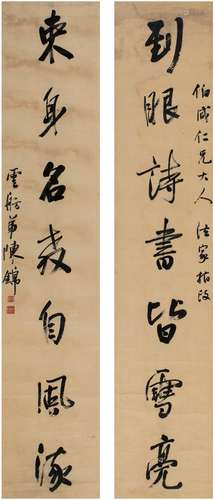 伯咸仁兄大人 法家
到眼詩書皆雪亮
束身名教自風流
雲舫弟陳錦